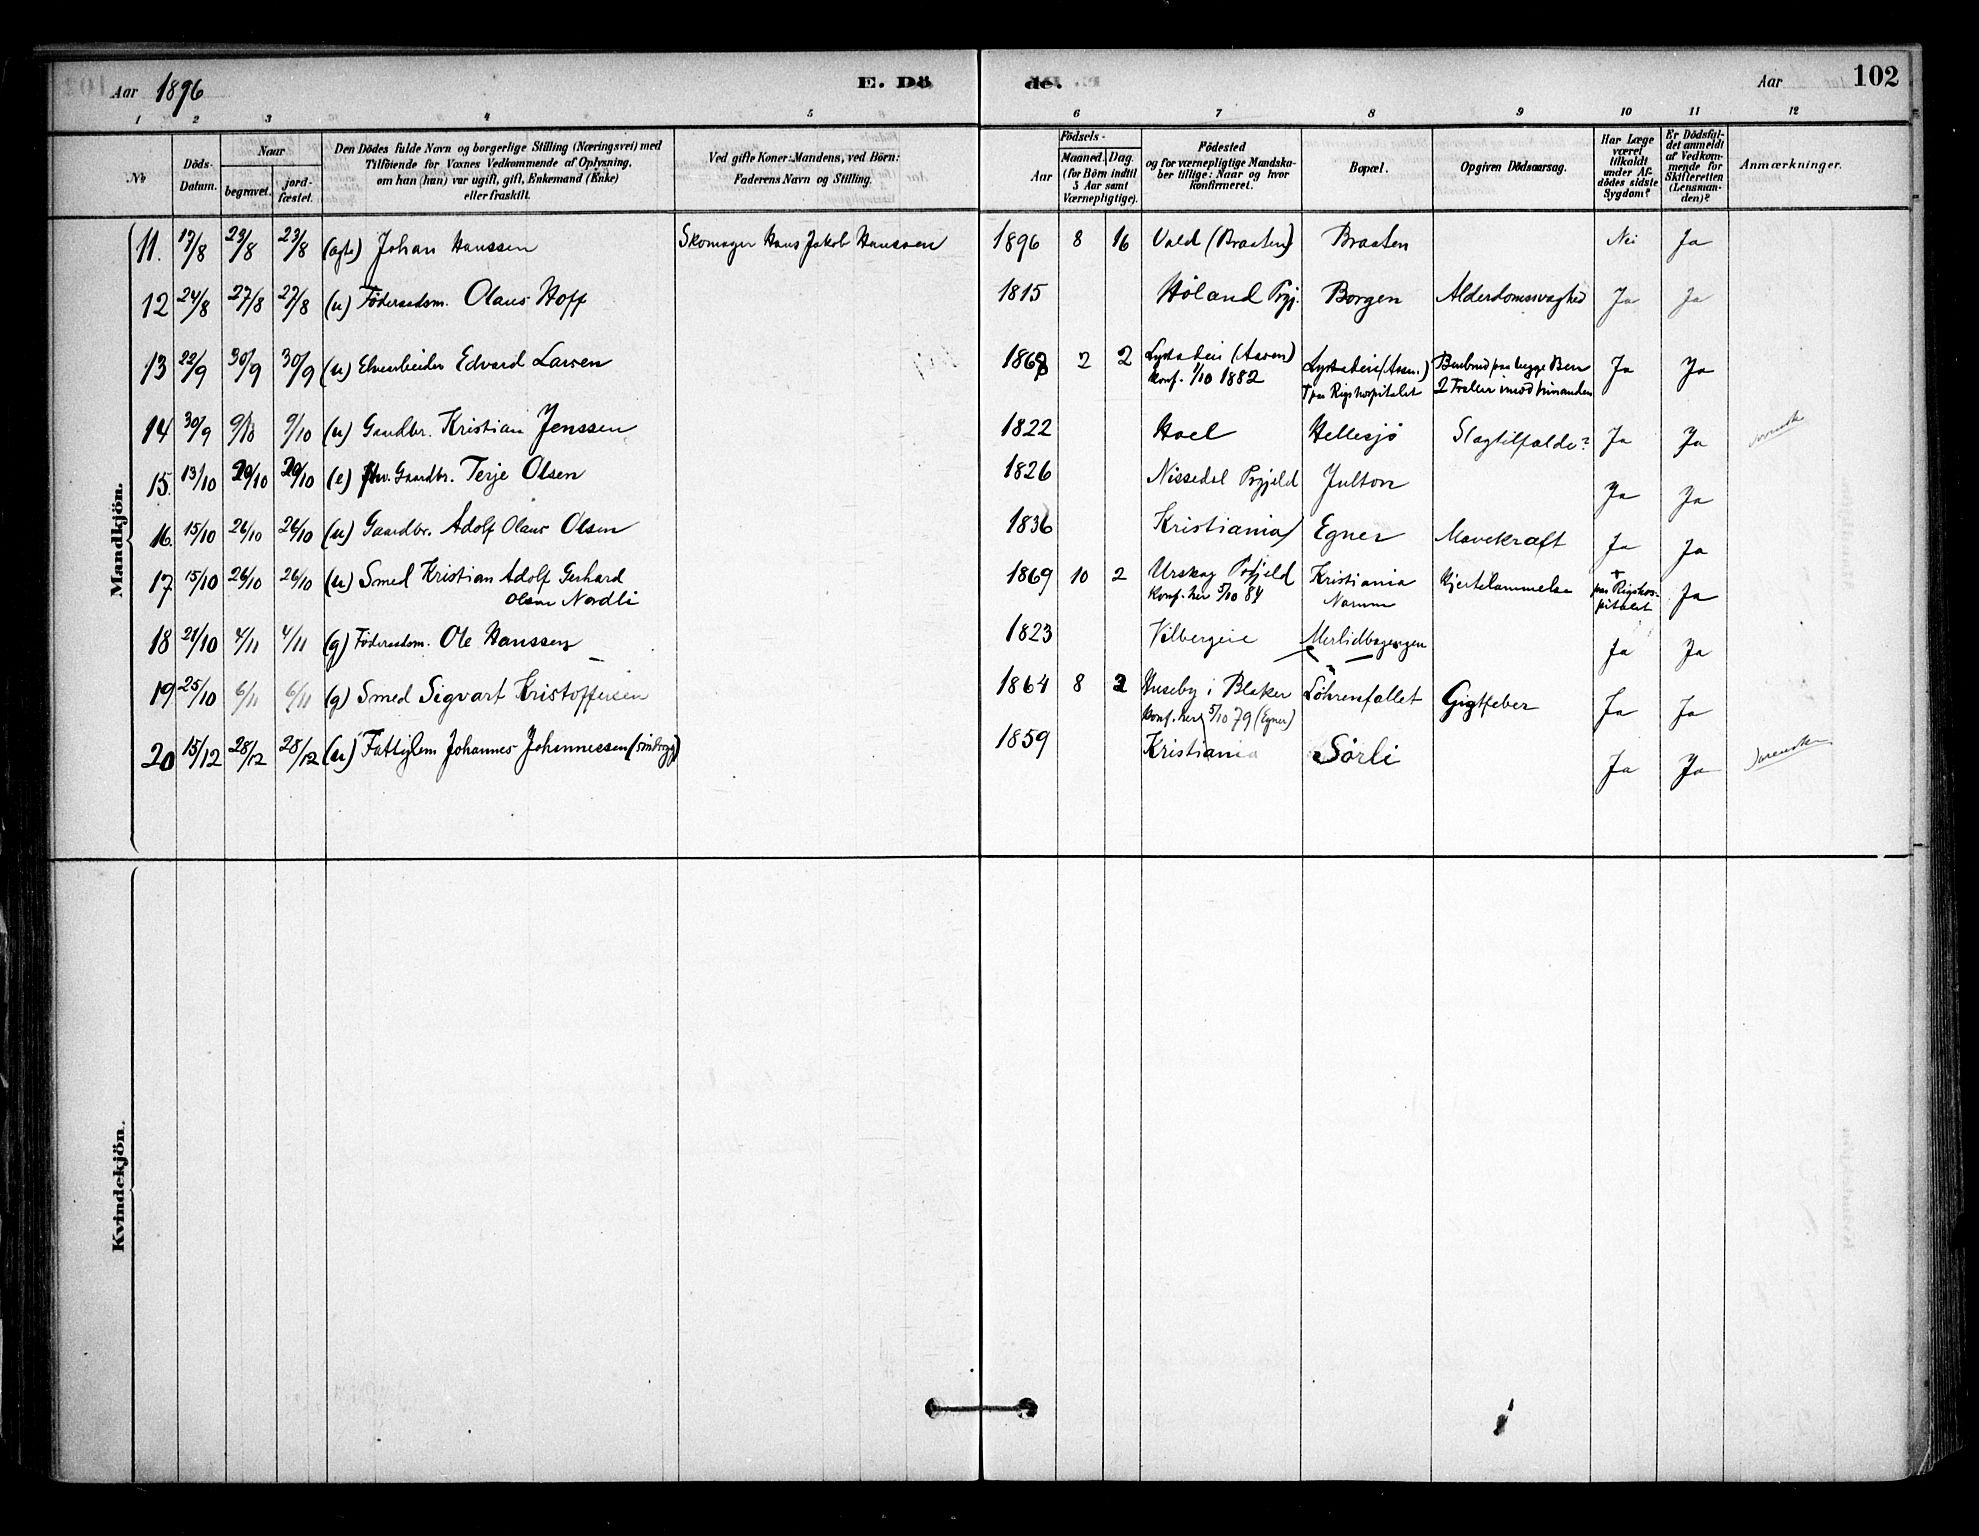 Aar 1896 E. Dö de. Aar 102
1 2 3 4 5 6 7 8 9 10 11 12
No
Döds-Datum.
Naar
begravet. jord-fæstet.
Den Dödes fulde Navn og borgerlige Stilling (Næringsvei) med
Tilföiende for Voxnes Vedkommende af Oplysning,
om han (hun) var ugift, gift, Enkemand (Enke)
eller fraskilt.
Ved gifte Koner: Mandens, ved Börn:
Faderens Navn og Stilling.
Födsels-
Aar Maaned. Dag.
(for Börn indtil
5 Aar samt
Værnepligtige).
Födested
og for værnepligtige Mandska-
ber tillige: Naar og hvor
konfirmeret.
Bopæl.
Opgiven Dödsaarsag.
Har Læge
været
tilkaldt
under Af-
dödes sidste
Sygdom?
Er Dödsfal-
det anmeldt
af Vedkom-
mende for
Skifteretten
(Lensman-
den)?
Anmærkninger.
Mandkjön.
11. 17/8 23/8 23/8 (ægte) Johan Hanssen Skomager Hans Jakob Hanssen 1896 8 16 Vald (Braaten) Braaten Nei Ja
12 24/8 27/8 27/8 (u) Föderaadsm. Olaus Hoff 1815 Höland Prgj. Borgen Alderdomssvaghed Ja Ja
13 22/9 30/9 30/9 (u) Edvard Larsen 1868 2 2 (Aasen)
Konf. 1/10 1882 paa begge Ben Ja Ja
paa Rigshospitalet 2 Traller imod hinanden
14 30/9 9/10 9/10 (u) Gaardbr. Kristian Jenssen 1822 Hoel Hellesjö Slagtilfælde? Ja Ja
15. 13/10 20/10 20/10 (e) Gaardbr. Terje Olsen 1826 Nissedal Prgjeld Julton Ja Ja
16. 15/10 26/10 26/10 (u) Gaardbr. Adolf Olaus Olsen 1836 Kristiania Egner Mavekræft Ja Ja
17 15/10 26/10 26/10 (u) Smed Kristian Adolf Gerhard
Olsen Nordli 1869 10 2 Urskog Prgjeld
Konf. her 5/10 84 Kristiania Kjertelammelse paa Rigshos-
pitalet Ja
18 21/10 4/11 4/11 (g) Föderaadsm. Ole Hanssen 1823 Vilbergeie Ja Ja
19 25/10 6/11 6/11 (g) Smed Sigvart Kristoffersen 1864 8 2 Huseby i Blaker
Konf. her 5/10 79 (Egner) Löhrenfallet Gigtfeber Ja Ja
20 15/12 28/12 28/12 (u) Fattiglem Johannes Johannessen (sindssyg) 1859 Kristiania Sörli Ja Ja
Kvindekjön.